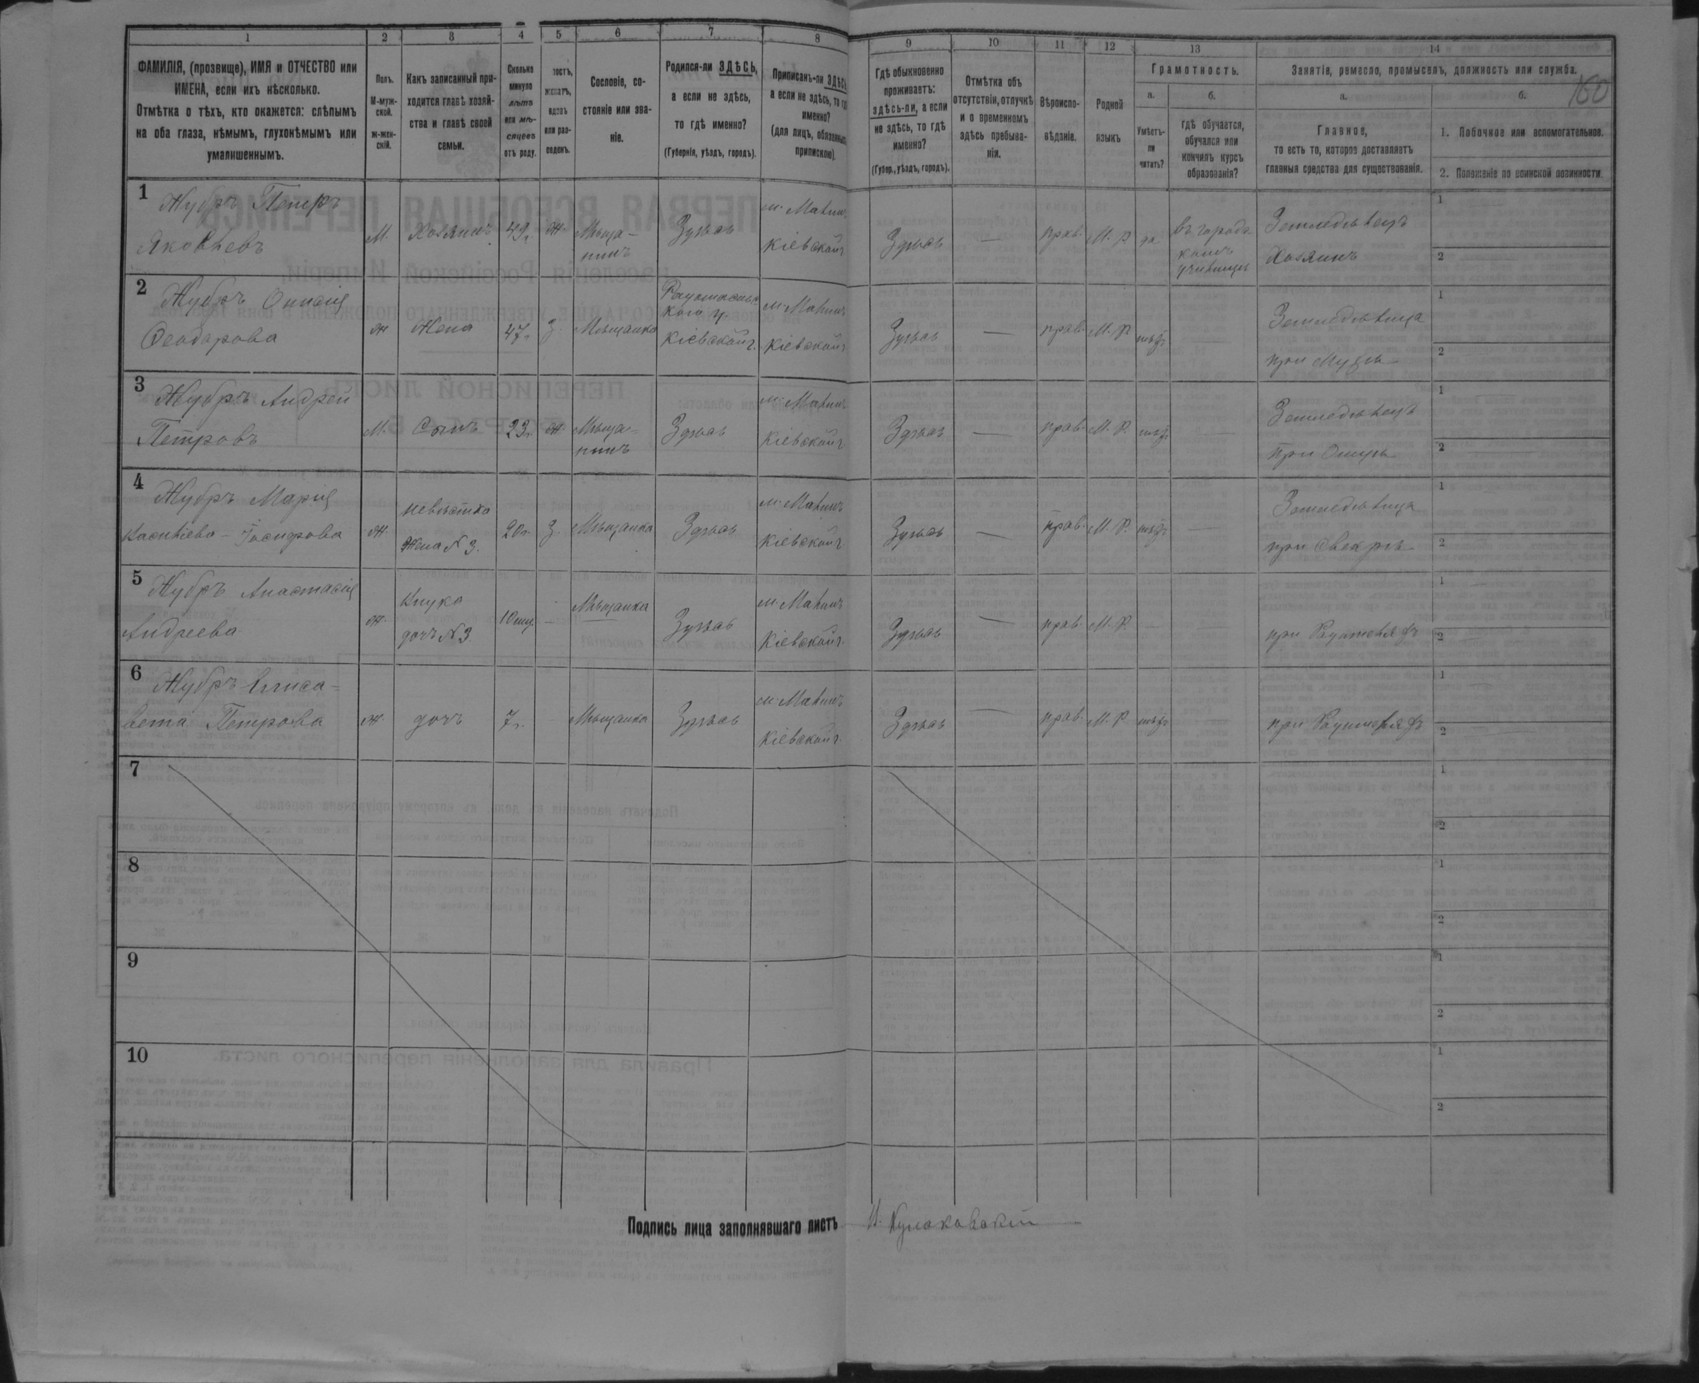 1
2
3
4
5
6
7
8
9
10
11
12
13
14
ФАМИЛІЯ, (прозвище), ИМЯ и ОТЧЕСТВО или
ИМЕНА, если ихъ нѣсколько.
Отмѣтка о тѣхъ, кто окажется: слѣпымъ
на оба глаза, нѣмымъ, глухонѣмымъ или
умалишеннымъ.
Полъ.
М-муж-
ской.
ж-жен-
скій.
Какъ записанный при-
ходится главѣ хозяй-
ства и главѣ своей
семьи.
Сколько
минуло
лѣтъ
или мѣ-
сяцевъ
отъ роду.
холостъ,
женатъ,
вдовъ
или раз-
веденъ.
Сословіе, со-
стояніе или зва-
ніе.
Родился-ли ЗДѢСЬ,
а если не здѣсь,
то гдѣ именно?
(Губернія, уѣздъ, городъ).
Приписанъ-ли ЗДѢСЬ,
а если не здѣсь, то гдѣ
именно?
(для лицъ, обязанныхъ
припискою)
Гдѣ обыкновенно
проживаетъ:
здѣсь-ли, а если
не здѣсь, то гдѣ
именно?
(Губер., уѣздъ, городъ).
Отмѣтка объ
отсутствіи, отлучкѣ
и о временномъ
здѣсь пребыва-
ніи.
Вѣроиспо-
вѣданіе.
Родной
языкъ
Грамотность.
а.
б.
Умѣетъ-
ли
читать?
гдѣ обучается,
обучался или
кончилъ курсъ
образованія?
Занятія, ремесло, промыселъ, должность или служба.
160
а.
б.
Главное,
то есть то, которое доставляетъ
главныя средства для существованія.
1. Побочное или вспомогательное.
2. Положеніе по воинской повинности
1
Жубръ Петръ
Яковлевъ
М. Хозяинъ 49г. Ж. Мѣща-
нинъ
Здѣсь
Кіевской г.
Здѣсь — прав. М. Р. да
въ город
училищѣ
Земледѣлецъ
Хозяинъ
1
2
2
Жубръ
Феодорова
ж Жена 47г. З. Мѣщанка
Кіевской г.
Кіевской г.
Здѣсь — прав. М. Р. нѣтъ —
Земледѣлица
при мужѣ
1
2
3
Жубръ Андрей
Петровъ
М. Сынъ 23г. Ж Мѣща-
нинъ
Здѣсь
Кіевской г.
Здѣсь — прав. М. Р. нѣтъ —
Земледѣлецъ
при Отцѣ
1
2
4
Жубръ Марія
ж. невѣстка
Жена № 3.
20г. З. Мѣщанка Здѣсь
Кіевской г.
Здѣсь — прав. М. Р. нѣтъ —
Земледѣлица
при Свекрѣ
1
2
5
Жубръ Анастасія
Андреева
ж. Внука
дочь № 3
10 — Мѣщанка Здѣсь
Кіевской г.
Здѣсь — прав. М. Р. —
при Родителяхъ
1
2
6
Жубръ Елиса-
вета Петрова
ж. дочь 7г. Мѣщанка Здѣсь
Кіевской г.
Здѣсь — прав. М. Р. нѣтъ —
при Родителяхъ
1
2
7
1
2
8
1
2
9
1
2
10
1
2
Подпись лица заполнявшаго листъ